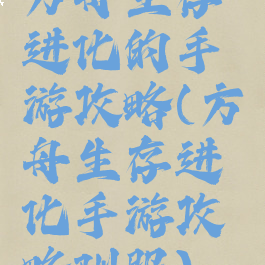 方舟生存
进化的手
游攻略(方
舟生存进
化手游攻